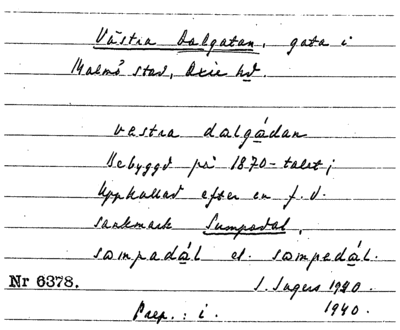 Västra Dalgatan, gata i
Malmö stad, Oxie hd.
västra dalgádan
Bebyggd på 1870-talet;
Uppkallad efter en f.d.
sankmark Sumpadal,
sampadál el. sampedál.
Nr 6378.
I. Ingers 1940.
Prep.: i.
1940.